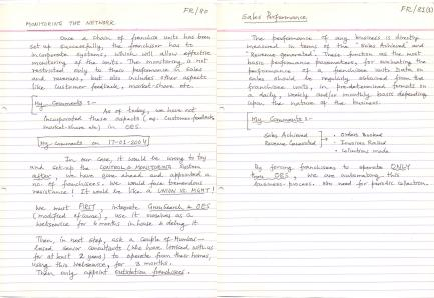 FR/80
MONITORING THE NETWORK
Once a chain of franchise units has been
set up successfully, the franchiser has to
incorporate systems, which will allow effective
monitoring of the units. The monitoring is not
restricted only to their performance in sales
and revenues, but also includes other aspects
like customer feedback, market-share etc.
My Comments :-
As of today, we have not
incorporated these aspects (eg. Customer-feedback,
market-share etc) in OES.
My comments on 17-01-2004
In our case, it would be wrong to try
and set-up the CONTROL & MONITORING system
after, we have gone ahead and appointed a
no. of franchisees. We would face tremendous
resistance! It would be like a UNION VS MGMT!
We must FIRST, integrate & OES
(modified ofcourse), use it ourselves as a
Webservice for 6 months in house & debug it
Then, in next step, ask a couple of Mumbai-
based senior consultants (who have worked with us
for at least 2 years) to operate from their homes,
using this Webservice, for 3 months.
Then only appoint outstation franchisees.
FR/81(1)
Sales Performance
The performance of any business is directly
measured in terms of the "Sales Achieved" and
"Revenue generated". These function as the most
basic performance parameters, for evaluating the
performance of a franchisee unit. Data on
sales should be regularly obtained from the
franchisee units, in predetermined formats on
a daily, weekly and/or monthly basis depending
upon the nature of the business.
My Comments :-
Sales Achieved
Revenue Generated
Orders Booked
Invoices Raised
Collections made
By forcing franchisees to operate ONLY
thru OES, we are automating this
business-process. No need for periodic collection.